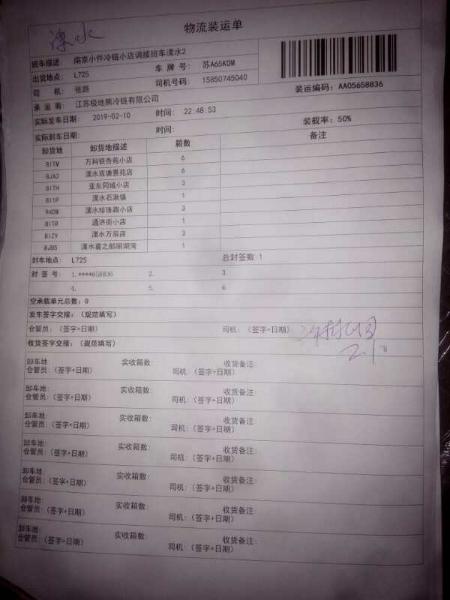 溧水
物流装运单
班车描述 南京小件冷链小店调拨班车溧水2
出货地点: L725 车牌号: 苏A65KDM
司 机: 张路 司机号码: 15850745040
承运商: 江苏极地熊冷链有限公司 装运编码: AA05658836
实际发车日期: 2019-02-10 时间: 22:48:53
实际到车日期: 时间: 装载率: 50%
卸货地 卸货地描述 箱数 备注
万科铁杏苑小店 6
溧水双塘景苑店 6
81TH 亚东同城小店 3
溧水石湫镇 1
溧水珍珠路小店 3
通济街小店 1
溧水万辰店 3
溧水喜之郎丽湖湾 1
封车地点: L725 总封签数 1
封签号 1. 2. 3
4. 5. 6
空承载单元总数: 0
发车签字交接: (规范填写)
仓管员: (签字+日期) 司机: (签字+日期)
收货签字交接: (规范填写)
卸车地: 实收箱数: 收货备注:
仓管员: (签字+日期) 司机: (签字+日期)
卸车地: 实收箱数: 收货备注:
仓管员: (签字+日期) 司机: (签字+日期)
卸车地: 实收箱数: 收货备注:
仓管员: (签字+日期) 司机: (签字+日期)
卸车地: 实收箱数: 收货备注:
仓管员: (签字+日期) 司机: (签字+日期)
卸车地: 实收箱数: 收货备注:
仓管员: (签字+日期) 司机: (签字+日期)
卸车地: 实收箱数: 收货备注:
仓管员: (签字+日期) 司机: (签字+日期)